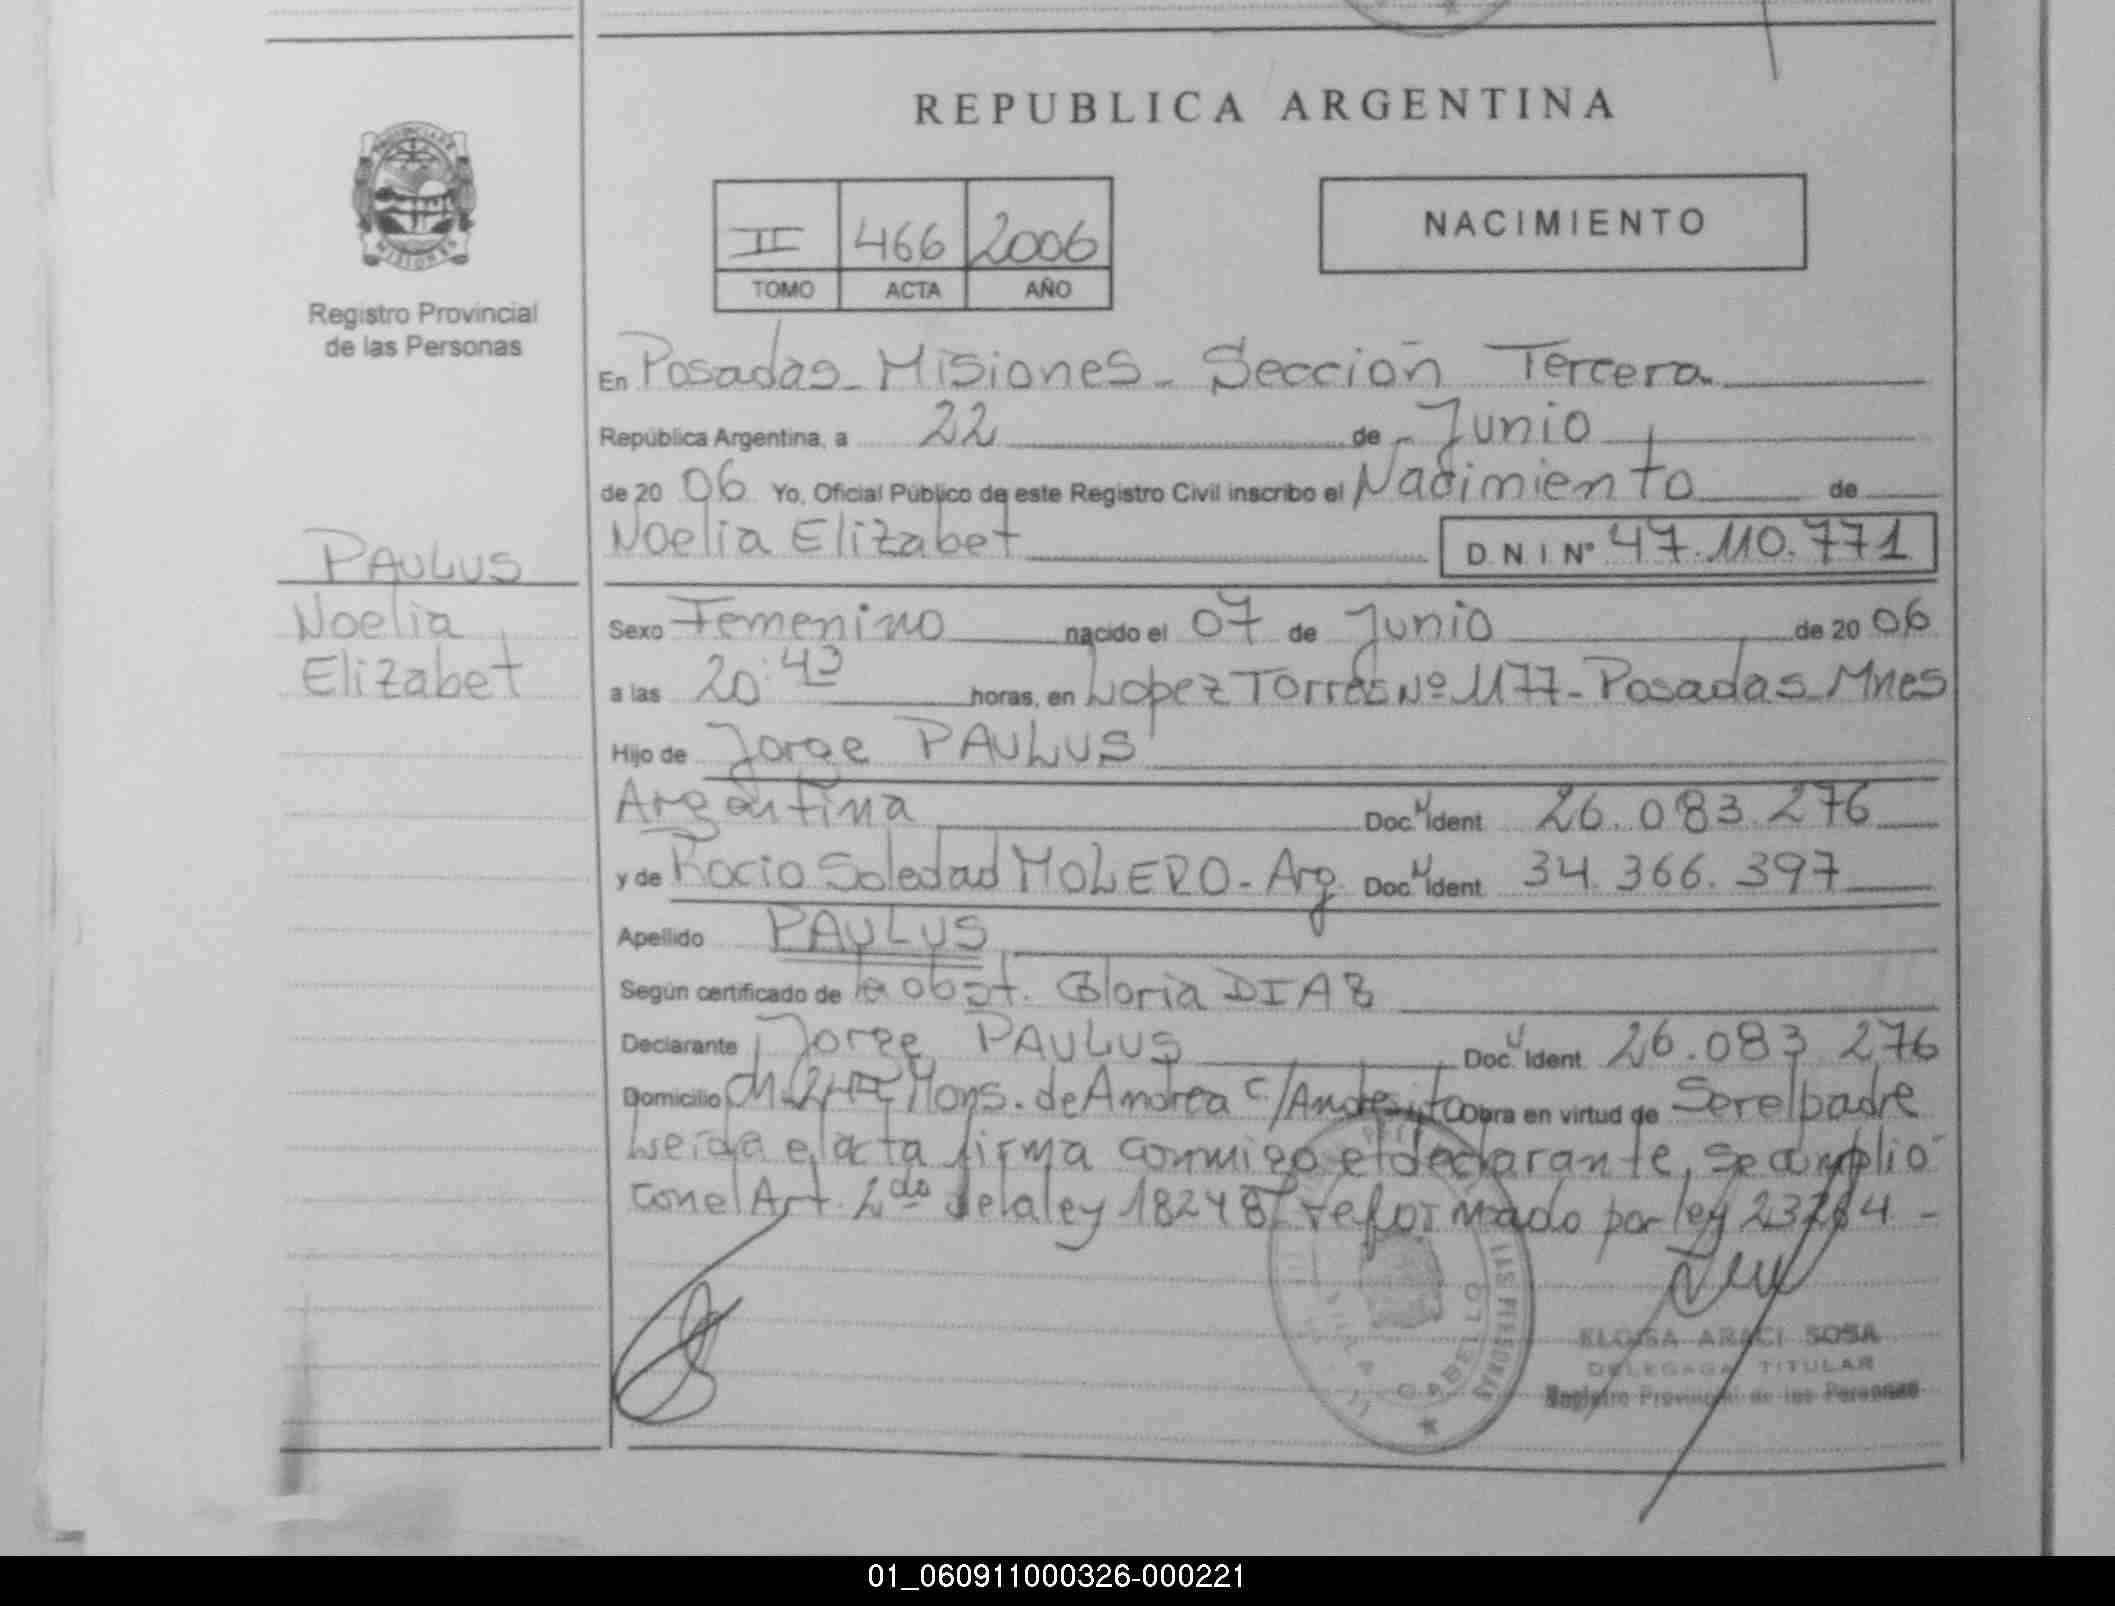 REPUBLICA ARGENTINA
PROVINCIA DE
MISIONES
Registro Provincial
de las Personas
II 466 2006
TOMO ACTA AÑO
NACIMIENTO
En Posadas - Misiones - Sección Tercera
República Argentina, a 22 de Junio
de 2006 Yo, Oficial Público de este Registro Civil inscribo el Nacimiento de
Noelia Elizabet D.N.I Nº 47.110.771
PAULUS
Noelia
Elizabet
Sexo Femenino nacido el 07 de Junio de 2006
a las 20:43 horas, en Lopez Torres Nº 1177 - Posadas Mnes
Hijo de Jorge PAULUS
Argentina Doc. Ident. 26.083.276
y de Rocio Soledad MOLERO - Arg. Doc. Ident. 34.366.397
Apellido PAULUS
Según certificado de la obst. Gloria DIAZ
Declarante Jorge PAULUS Doc. Ident. 26.083.276
Domicilio Mons. de Andrea c/Andresito Obra en virtud de Ser el padre
Leida el acta firma conmigo el declarante, se amplio
con el Art. 2do de la ley 18248 reformado por ley
ELOISA ARACI SOSA
DELEGADA TITULAR
Registro Provincial de las Personas
LAS PERSONAS
01_060911000326-000221